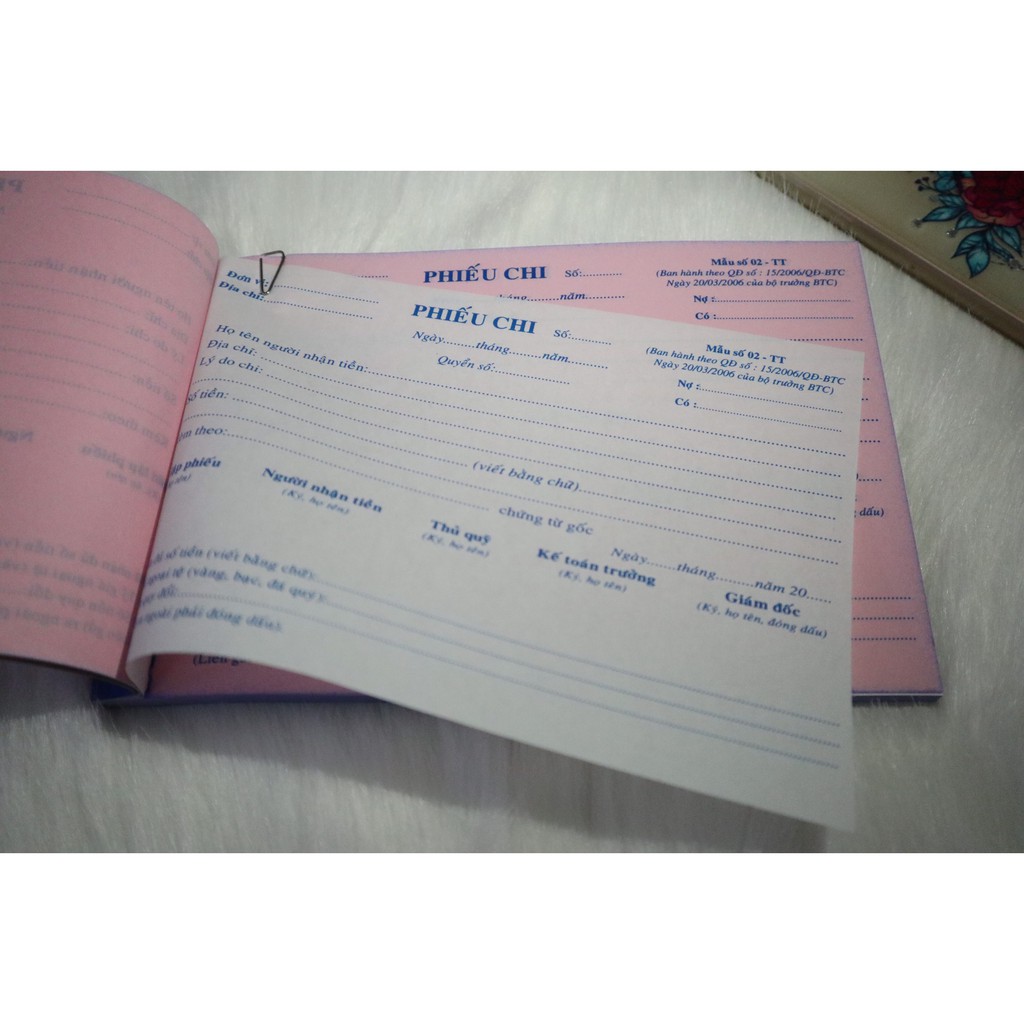 PHIẾU CHI Số:............
năm............
Mẫu số 02 - TT
(Ban hành theo QĐ số : 15/2006/QĐ-BTC
Ngày 20/03/2006 của bộ trưởng BTC)
Nợ :............
Có :............
Đơn vị:............
Địa chỉ:............
PHIẾU CHI Số:............
Ngày..........tháng..........năm............
Quyển số:............
Mẫu số 02 - TT
(Ban hành theo QĐ số : 15/2006/QĐ-BTC
Ngày 20/03/2006 của bộ trưởng BTC)
Nợ :............
Có :............
Họ tên người nhận tiền:............
Địa chỉ:............
Lý do chi:............
Số tiền:............ (viết bằng chữ)............
theo:............ chứng từ gốc
Ngày.......tháng..........năm 20......
phiếu
Người nhận tiền
(Ký, họ tên)
Thủ quỹ
(Ký, họ tên)
Kế toán trưởng
(Ký, họ tên)
Giám đốc
(Ký, họ tên, đóng dấu)
số tiền (viết bằng chữ):............
ngoại tệ (vàng, bạc, đá quý):............
đổi:............
ngoài phải đóng dấu).
dấu)
(Liên g